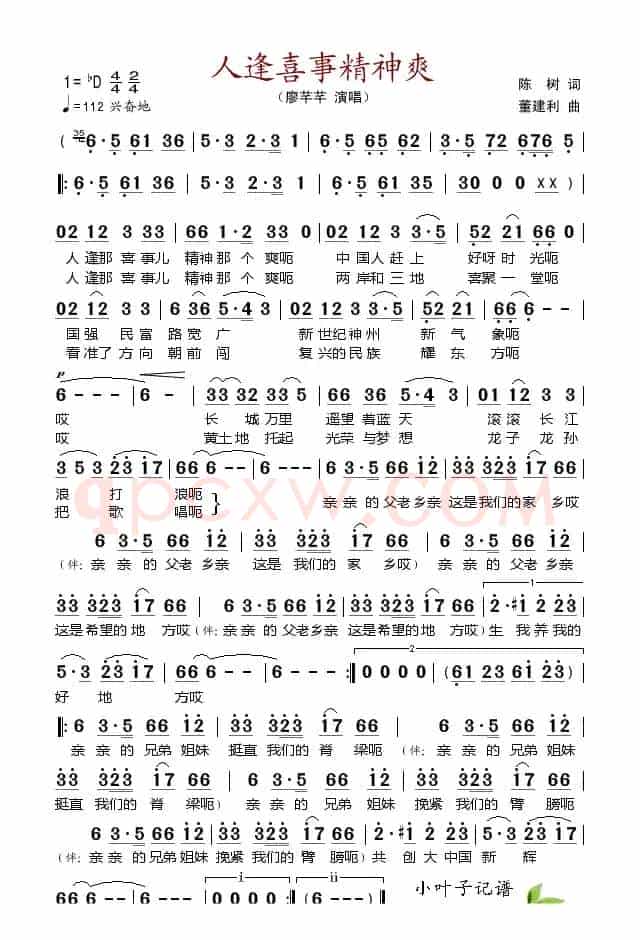 人逢喜事精神爽
1=♭D 4/4 2/4
♩=112 兴奋地
(廖芊芊 演唱)
陈 树 词
董建利 曲
( 35 6·5 61 36 | 5·3 2·3 1 | 6·5 61 65 62 | 7·2 676 5 |
|: 6·5 61 36 | 5·3 2·3 1 | 6·5 61 35 | 30 0 0 XX ) |
02 12 3 33 | 66 1·2 33 0 | 02 12 3 3·5 | 52 21 66 0 |
人 逢那 喜 事儿 精神 那 个 爽呃 中 国人 赶 上 好呀 时 光呃
人 逢那 喜 事儿 精神 那 个 爽呃 两 岸和 三 地 喜聚 一 堂呃
02 12 3 3 | 6 36 5·5 | 02 12 33 | 52 21 | 66 6 - |
国强 民富 路宽广 新世纪神州 新 气 象呃
看准了方向 朝前 闯 复兴的民族 耀 东 方呃
p
6 - - | 6 - | 33 32 33 3 | 35 36 5·4 3 | 12 1 2 3 |
哎 长 城万里 遥望着蓝天 滚滚长江
哎 黄土地 托起 光荣与梦想 龙子龙孙
3 5 3 23 17 | 66 6 - - | 6 - - - | 6 3·5 66 12 | 33 323 17 66 |
浪 打 浪呃 亲 亲 的 父老乡亲 这是我们的家 乡哎
把 歌 唱呃
qpcxw.com
6 3·5 66 12 | 33 323 17 66 | 6 3·5 66 12 |
(伴: 亲 亲 的 父老 乡亲 这是 我们的 家 乡哎) 亲 亲 的 父老 乡亲
1
33 323 17 66 | 6 3·5 66 12 | 33 323 17 66 | 2·#1 2 2 |
这是希望的地 方哎(伴: 亲 亲 的父老乡亲 这是希望的地 方哎)生 我养我的
2
5·3 23 17 | 6 - - - | 6 - - :| 0 0 0 0 | (61 23 61 23 |
好 地 方哎
|: 6 3·5 66 12 | 33 323 17 66 | 6 3·5 66 12 |
亲 亲 的 兄弟 姐妹 挺直 我们的 脊 梁呃 (伴: 亲 亲 的 兄弟 姐妹
33 323 17 66 | 6 3·5 66 12 | 33 323 17 66 |
挺直 我们的 脊 梁呃) 亲 亲 的 兄弟 姐妹 挽紧 我们的 臂 膀呃
6 3·5 66 12 | 33 323 17 66 | 2·#1 2 2 | 5·3 23 17 |
(伴: 亲 亲 的兄弟 姐妹 挽紧 我们的 臂 膀呃) 共 创 大 中国 新 辉
i ii
小叶子记谱